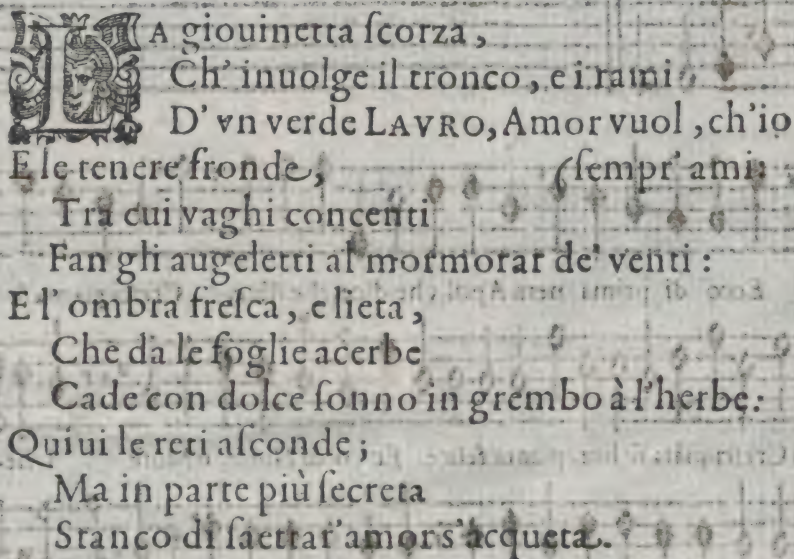 LA giouinetta ſcorza,
Ch' inuolge il tronco, e i rami
D' vn verde LAVRO, Amor vuol, ch'io
E le tenere fronde, (ſempr' ami:
Tra cui vaghi concenti
Fan gli augeletti al mormorar de' venti:
E l' ombra freſca, e lieta,
Che da le foglie acerbe
Cade con dolce ſonno in grembo à l'herbe:
Quiui le reti aſconde;
Ma in parte più ſecreta
Stanco di ſaettar' amor s'acqueta.